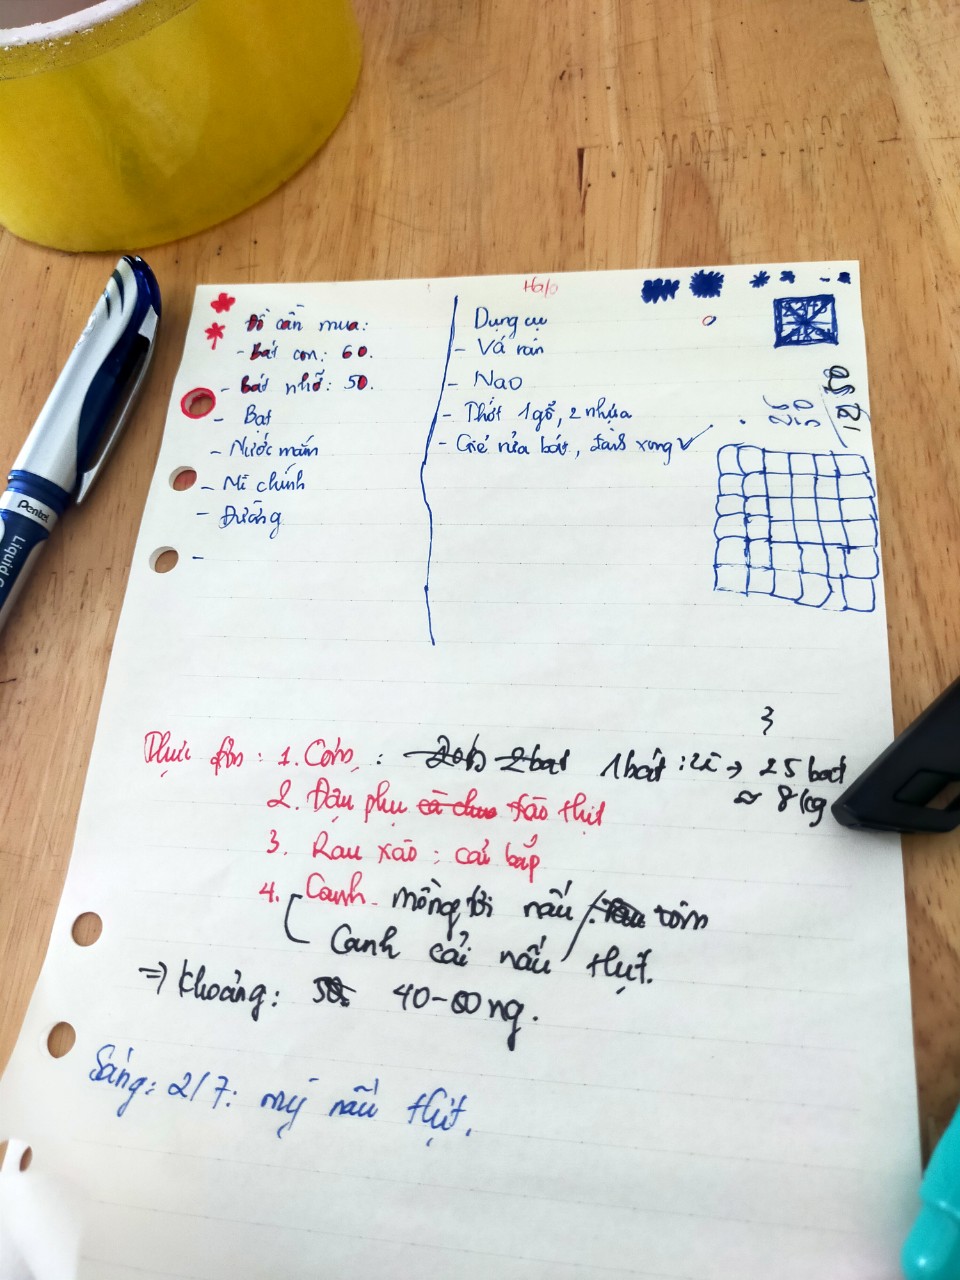 Halo
Đồ cần mua:
- Bát con: 60.
- bát nhỡ: 50.
- Bat
- Nước mắm
- Mì chính
- Đường
-
Dụng cụ
- Vá rán
- Nao
- Thớt 1 gỗ, 2 nhựa
- Giẻ rửa bát, đánh xong ✓
Pentel
Liquid G
3
Thức ăn: 1. Cơm : 1 bát : 2l → 25 bat
≈ 8kg
2. Đậu phụ cà chua xào thịt
3. Rau xào : cải bắp
4. Canh mồng tơi nấu tôm
Canh cải nấu thịt.
=> Khoảng: 40-60 ng.
Sáng: 2/7: mỳ nấu thịt.